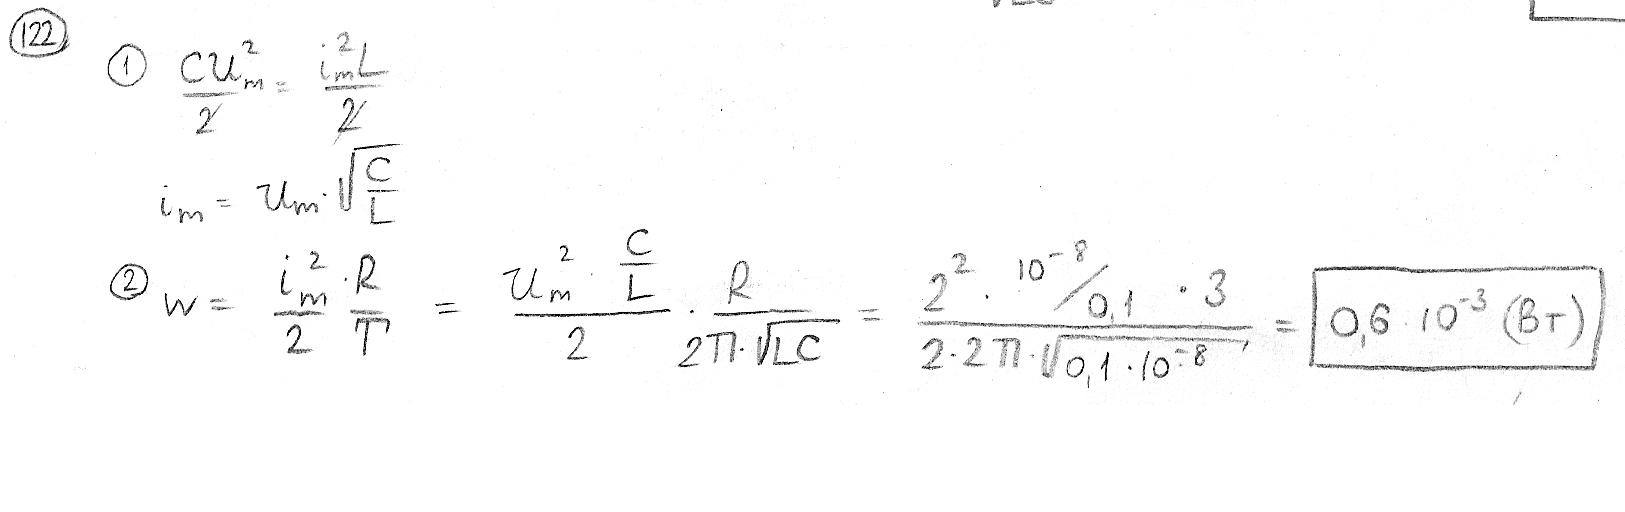 122
① CU_m²/2 = i_m²L/2
i_m = U_m·√(C/L)
② W = i_m²/2 · R/T = (U_m² · C/L)/2 · R/(2π·√LC) = (2² · 10⁻⁸/0,1 · 3)/(2·2π·√(0,1·10⁻⁸)) = 0,6·10⁻³ (Вт)